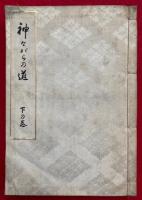 神ながらの道
下の巻